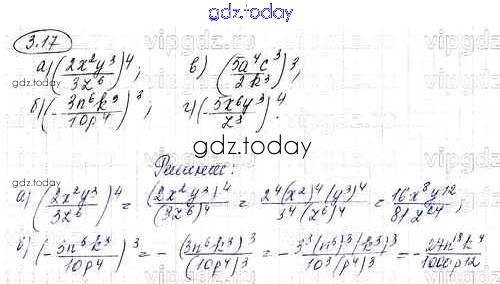 gdz.today
3.17
а) (2x²y³/3z⁶)⁴; в) (5a⁴c³/2k³)³;
б) (-3n⁶k³/10p⁴)³; г) (-5x⁶y³/z³)⁴.
gdz.today
Решение:
а) (2x²y³/3z⁶)⁴ = (2x²y³)⁴/(3z⁶)⁴ = 2⁴(x²)⁴(y³)⁴/3⁴(z⁶)⁴ = 16x⁸y¹²/81z²⁴;
б) (-3n⁶k³/10p⁴)³ = -(3n⁶k³)³/(10p⁴)³ = -3³(n⁶)³(k³)³/10³(p⁴)³ = -27n¹⁸k⁹/1000p¹²
gdz.today